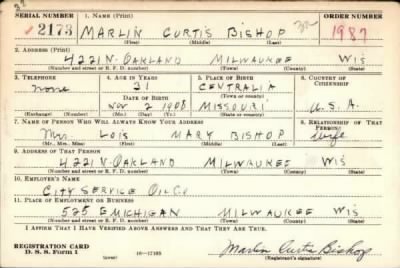 SERIAL NUMBER 1. NAME (Print) ORDER NUMBER
2173 MARLIN CURTIS BISHOP 1987
(First) (Middle) (Last)
2. ADDRESS (Print)
4221 N. OAKLAND MILWAUKEE WIS
(Number and street or R. F. D. number) (Town) (County) (State)
3. TELEPHONE 4. AGE IN YEARS 5. PLACE OF BIRTH 6. COUNTRY OF CITIZENSHIP
none 31 CENTRALIA
DATE OF BIRTH (Town or county)
Nov 2 1908 MISSOURI U.S.A.
(Exchange) (Number) (Mo.) (Day) (Yr.) (State or country)
7. NAME OF PERSON WHO WILL ALWAYS KNOW YOUR ADDRESS 8. RELATIONSHIP OF THAT PERSON
Mrs. LOIS MARY BISHOP wife
(Mr., Mrs., Miss) (First) (Middle) (Last)
9. ADDRESS OF THAT PERSON
4221 N. OAKLAND MILWAUKEE WIS
(Number and street or R. F. D. number) (Town) (County) (State)
10. EMPLOYER'S NAME
CITY SERVICE OIL CO
11. PLACE OF EMPLOYMENT OR BUSINESS
525 E MICHIGAN MILWAUKEE WIS
(Number and street or R. F. D. number) (Town) (County) (State)
I AFFIRM THAT I HAVE VERIFIED ABOVE ANSWERS AND THAT THEY ARE TRUE.
REGISTRATION CARD
D. S. S. Form 1 (over) 16—17105 Marlin Curtis Bishop
(Registrant's signature)